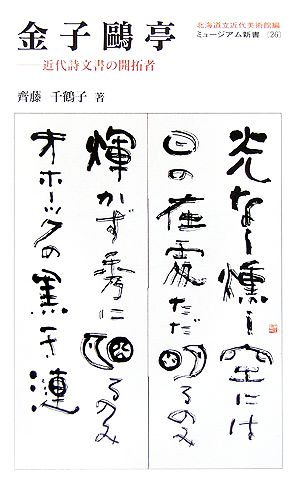 金子鷗亭
――近代詩文書の開拓者
齊藤 千鶴子 著
北海道立近代美術館編
ミュージアム新書 (26)
光なし燻し空には
日の在處ただ明るのみ
輝かず秀に明るのみ
オホーツクの黒き漣